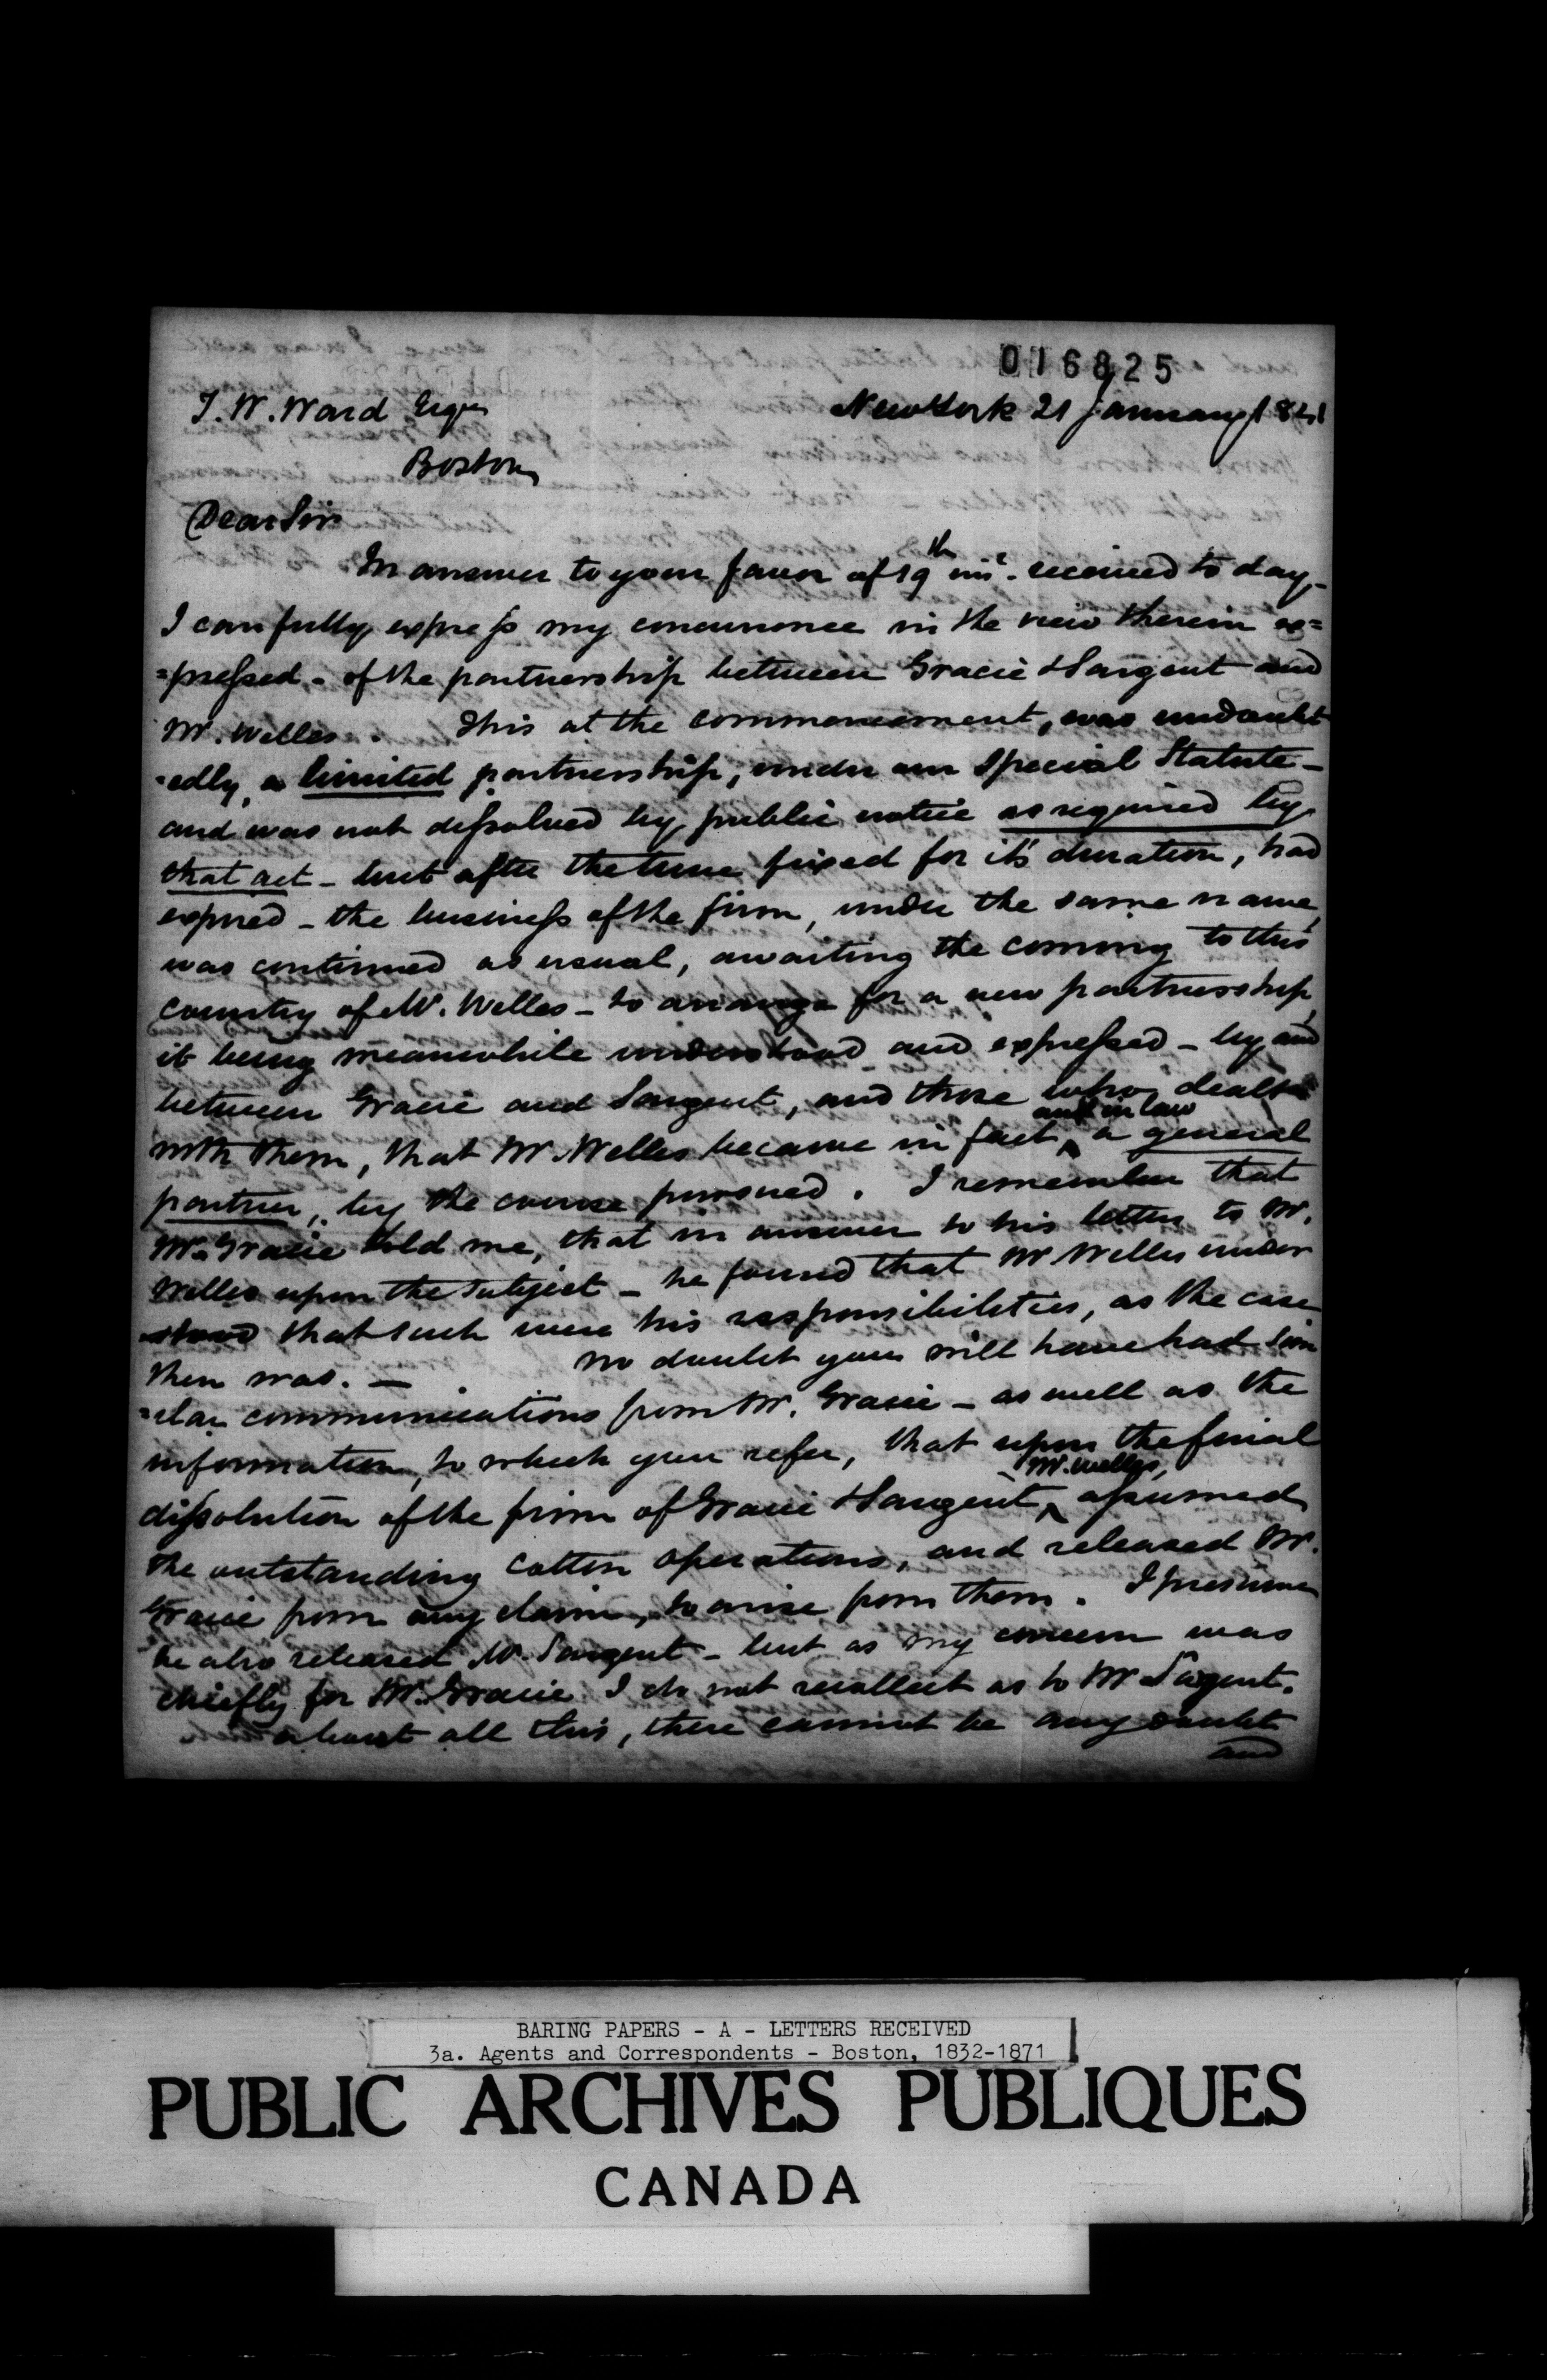 016825
T. W. Ward Esqr
New York 21 January 1841
Boston
Dear Sir
In answer to your favor of 19th inst. received to day,
I can fully express my concurrence in the view therein ex=
=pressed - of the partnership between Gracie & Sargent and
Mr. Welles. This at the commencement, was undoubt
=edly, a limited partnership, under our special Statute -
and was not dissolved by public notice as required by
that act - but after the time fixed for it's duration, had
expired - the business of the firm, under the same name,
was continued as usual, awaiting the coming to this
country of Mr. Welles - to arrange for a new partnership,
it being meanwhile understood and expressed - by and
between Gracie and Sargent, and those who dealt
and in law
with them, that Mr. Welles became in fact ^ a general
partner, by the course pursued. I remember that
Mr. Gracie told me, that in answer to his letter to Mr.
Welles upon the subject - he found that Mr Welles under
=stood that such were his responsibilities, as the case
then was. - No doubt you will have had simi
=lar communications from Mr. Gracie - as well as the
information, to which you refer, that upon the final
Mr. Welles,
dissolution of the firm of Gracie & Sargent ^ assumed
the outstanding cotton operations, and released Mr.
Gracie from any claim, to arise from them. I presume
he also released Mr. Sargent - but as my concern was
chiefly for Mr. Gracie I do not recollect as to Mr Sargent.
about all this, there cannot be any doubt
and
BARING PAPERS - A - LETTERS RECEIVED
3a. Agents and Correspondents - Boston, 1832-1871
PUBLIC ARCHIVES PUBLIQUES
CANADA